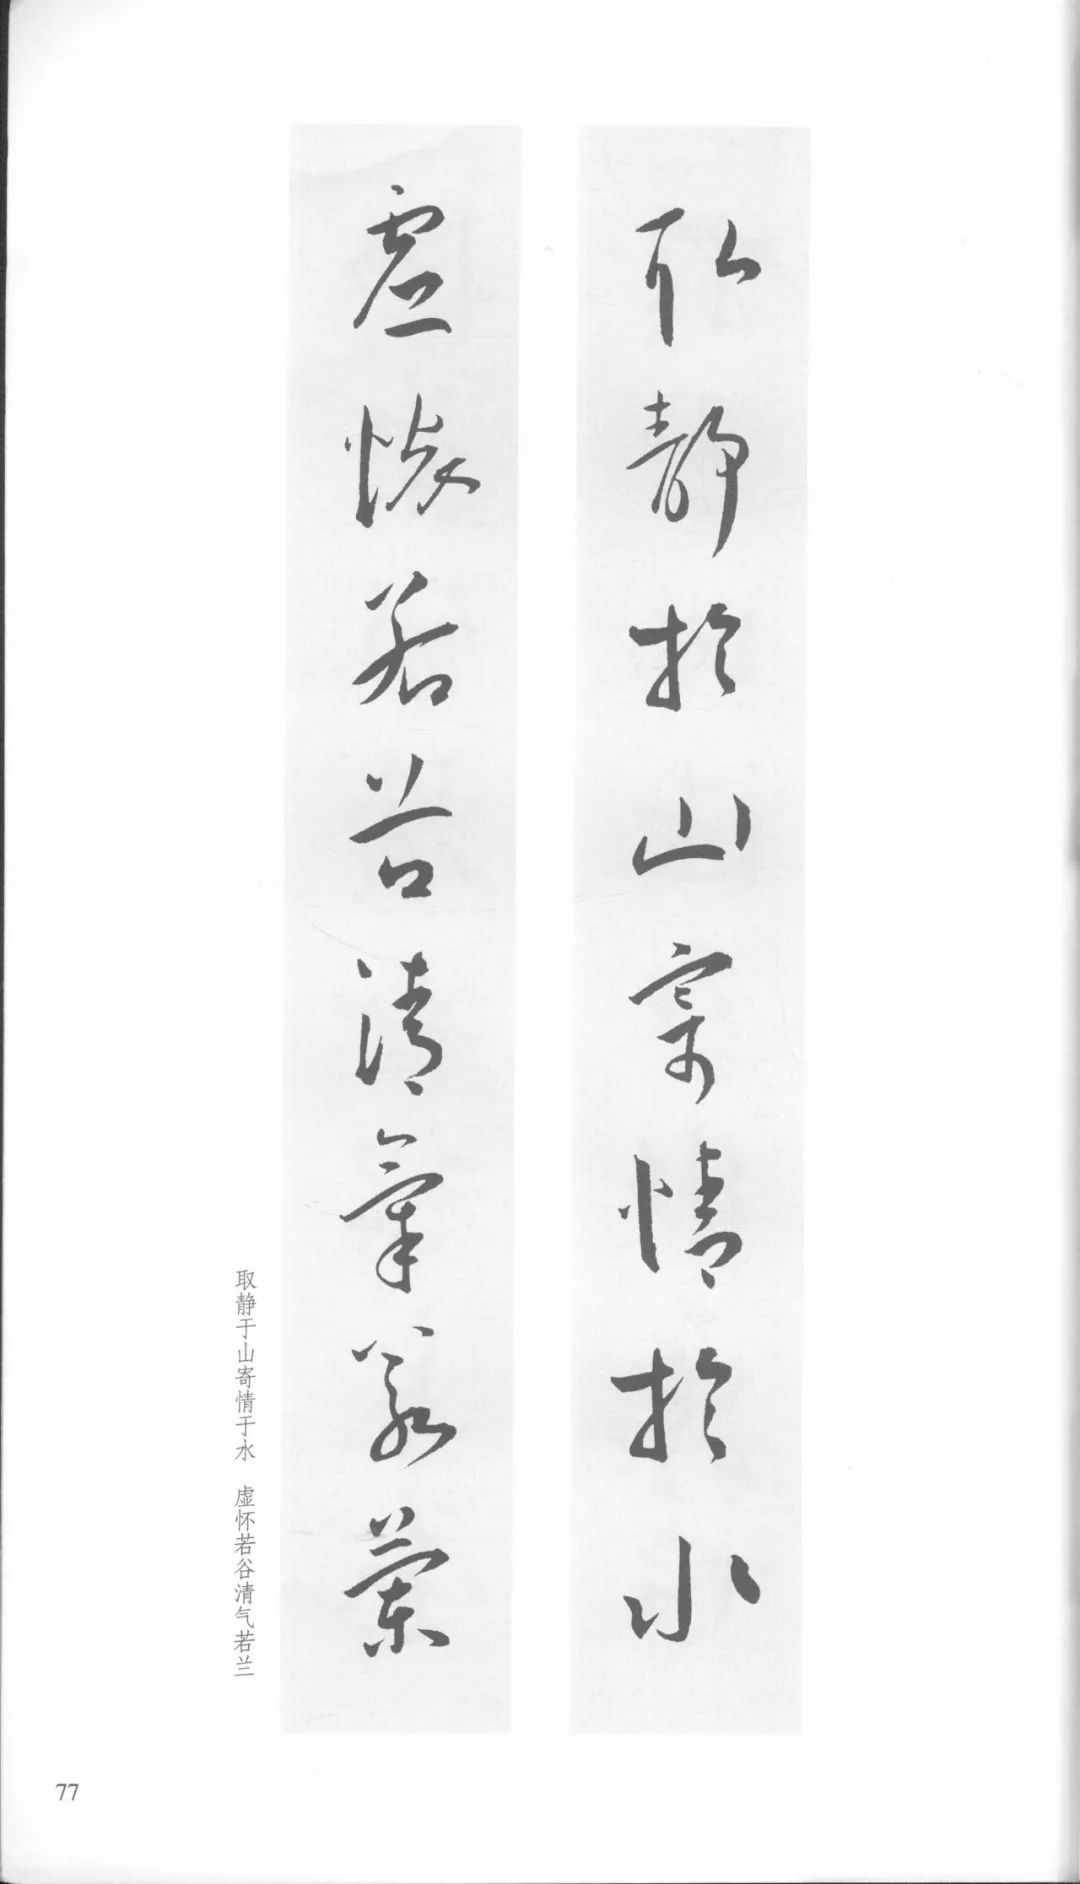 取靜於山寄情於水
虛懷若谷清氣若蘭
取静于山寄情于水 虚怀若谷清气若兰
77